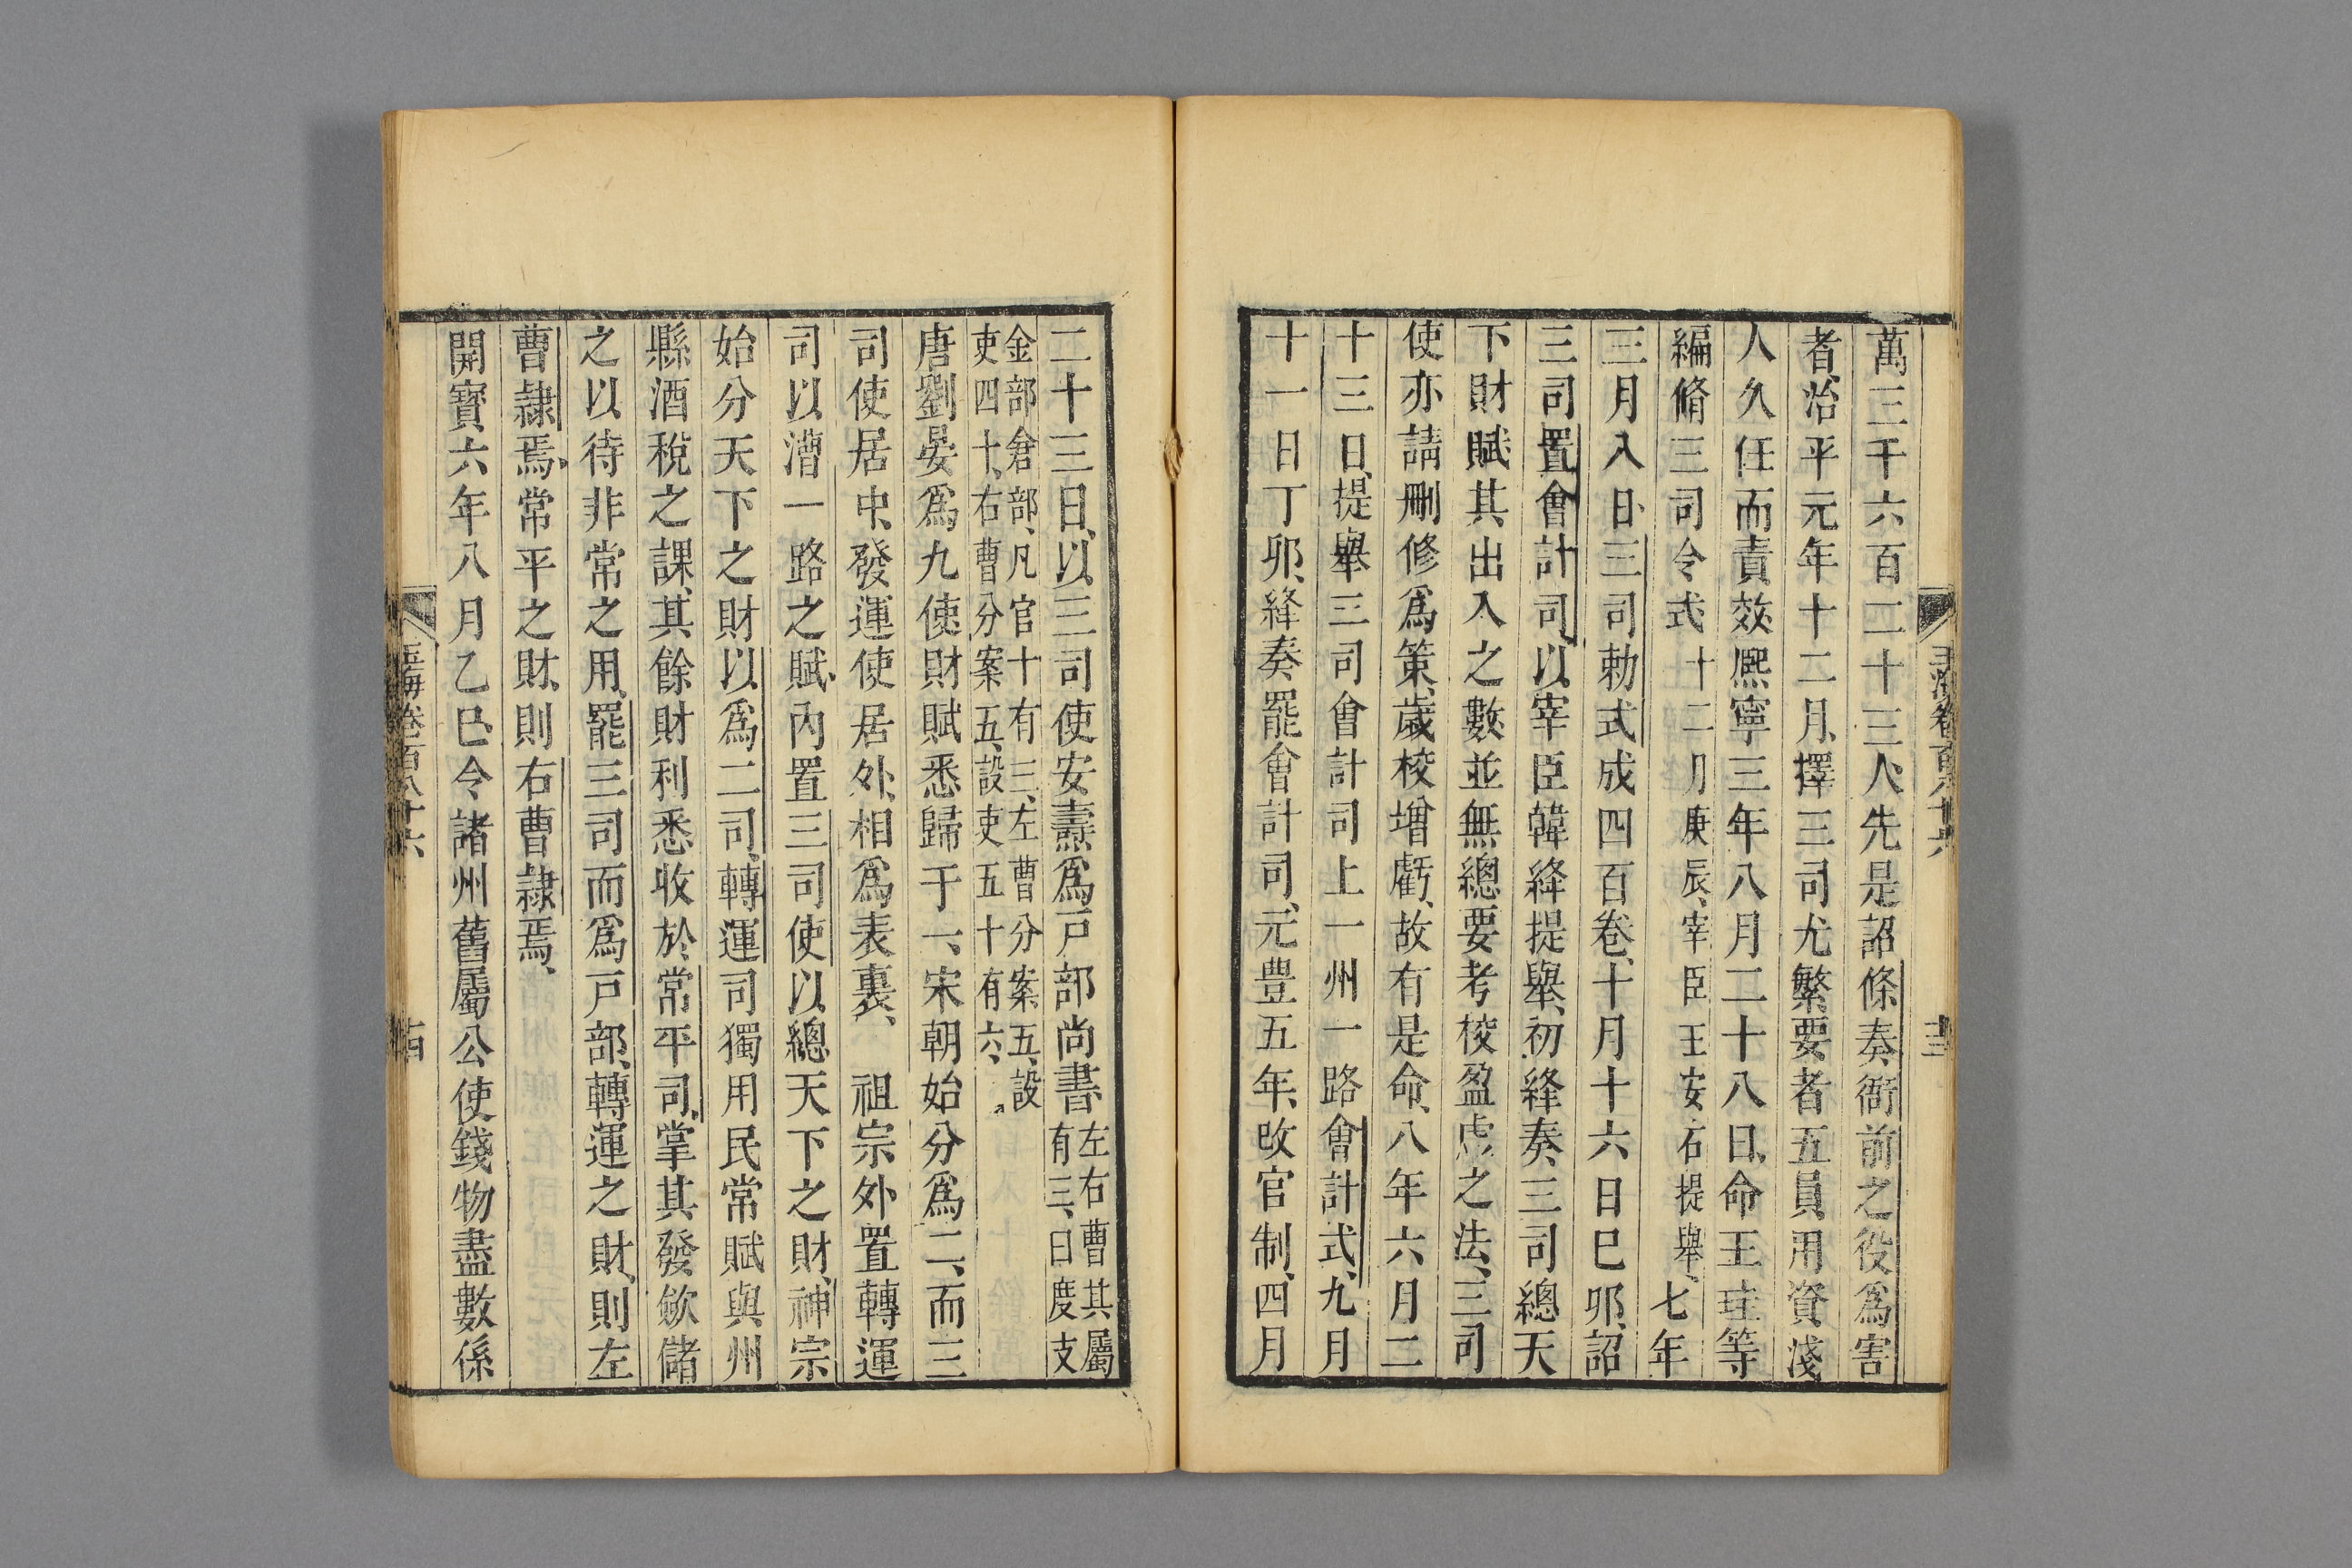 玉海卷百八十六
十三
萬三千六百二十三人先是詔條奏衙前之役爲害
者、治平元年十二月、擇三司尤繁要者五員、用資淺
人久任而責效熈寧三年八月二十八日、命王珪等
編脩三司令式十二月庚辰、宰臣王安石提舉、七年
三月入日、三司勅式成四百卷、十月十六日巳卯、詔
三司置會計司、以宰臣韓絳提舉、初絳奏、三司總天
下財賦其出入之數並無總要考校盈虚之法、三司
使亦請刪修爲策、歲校增虧、故有是命、八年六月二
十三日、提舉三司會計司上一州一路會計式、九月
十一日丁卯、絳奏罷會計司、元豊五年、改官制、四月
二十三日、以三司使安燾爲戸部尚書左右曹其屬
有三、曰度支
金部倉部、凡官十有三、左曹分案五、設
吏四十、右曹分案五、設吏五十有六、
唐劉晏爲九使財賦悉歸于一、宋朝始分爲二、而三
司使居中、發運使居外、相爲表裏、 祖宗外置轉運
司以漕一路之賦、內置三司使以總天下之財、神宗
始分天下之財以爲二司、轉運司獨用民常賦與州
縣酒稅之課、其餘財利悉收於常平司、掌其發斂儲
之以待非常之用、罷三司而爲戸部、轉運之財、則左
曹隷焉、常平之財、則右曹隷焉、
開寶六年八月乙巳、令諸州舊屬公使錢物盡數係
玉海卷百八十六
十四